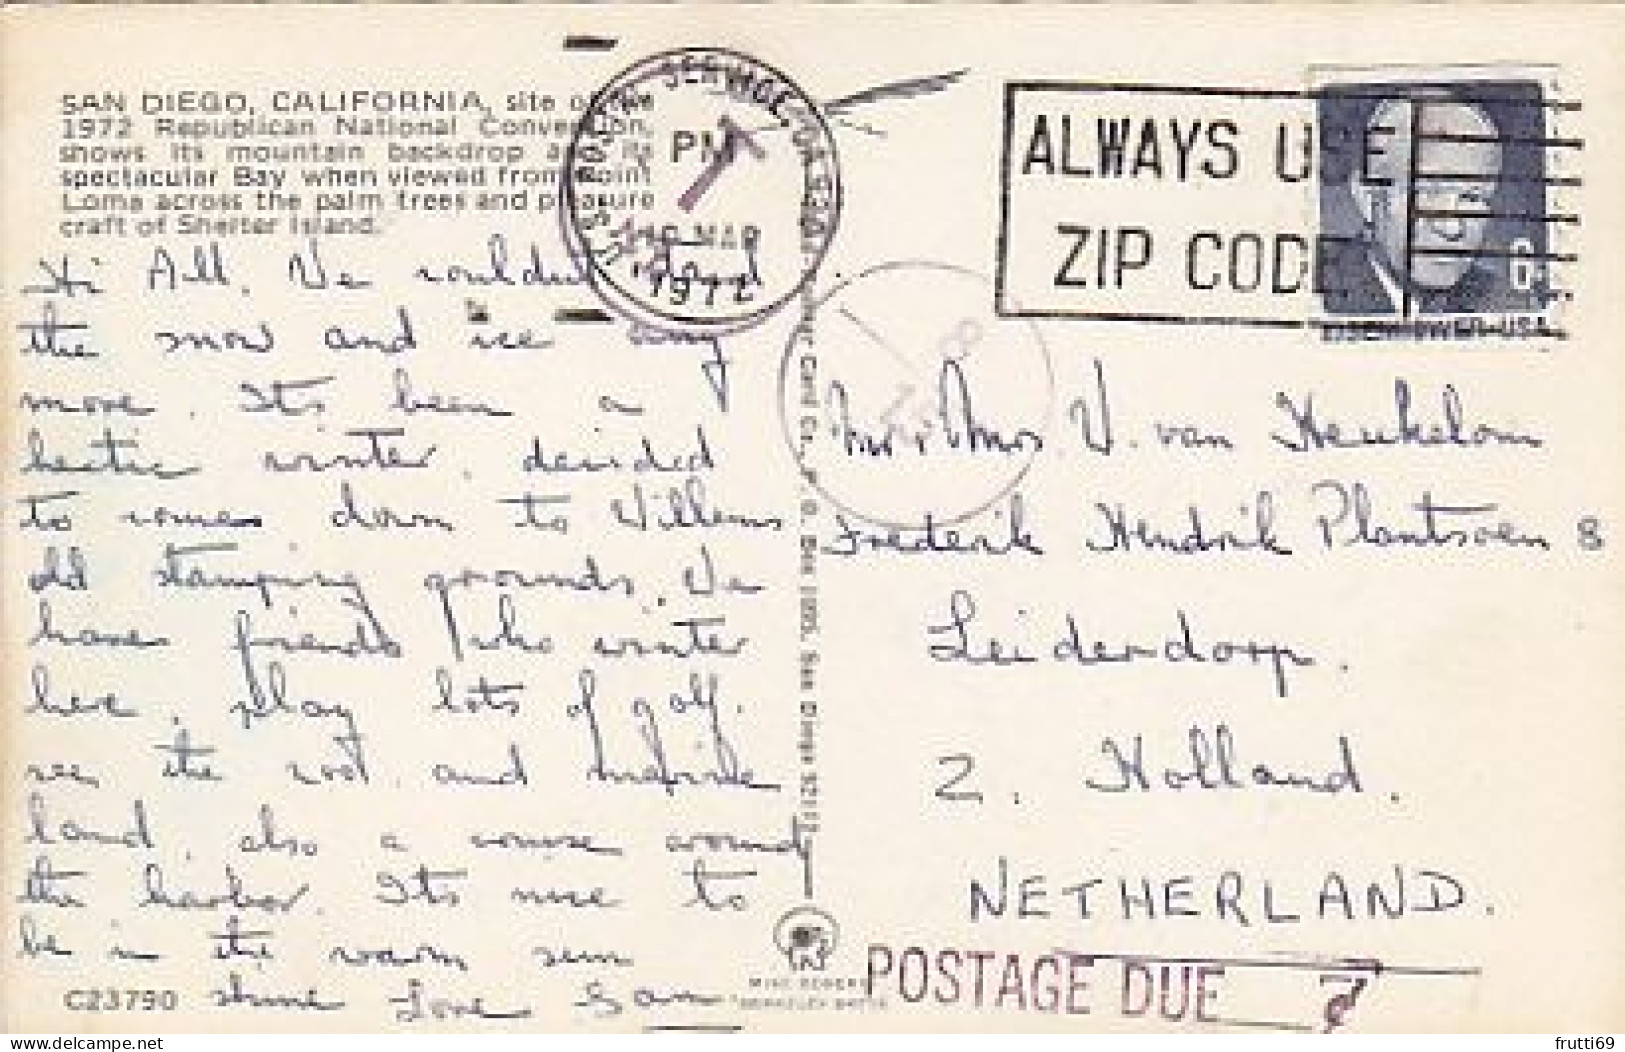 SAN DIEGO, CALIFORNIA, site of the
1972 Republican National Convention,
shows its mountain backdrop and its
spectacular Bay when viewed from Point
Loma across the palm trees and pleasure
craft of Shelter Island.
Hi All, We couldn't stand
the snow and ice any
more. Its been a
hectic winter, decided
to come down to Willems
old stamping grounds. We
have friends who winter
here, play lots of golf.
see the zoo, and
land, also a cruise around
the harbor. Its nice to
be in the warm sun
shine Love Sam
C23790
U.S. POSTAL SERVICE, CA
PM
MAR
1972
ALWAYS USE
ZIP CODE
6
EISENHOWER·USA
Card Co., P. O. Box 1095, San Diego 92112
Mr & Mrs V. van Heukelom
Frederik Hendrik Plantsoen 8
Leiderdorp.
Z. Holland.
NETHERLAND.
MIKE ROBERTS
BERKELEY 94710
POSTAGE DUE 7¢
delcampe.net
frutti69